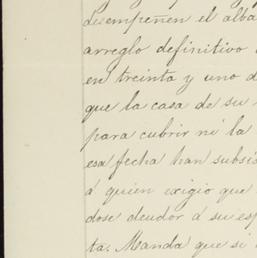 desempeñen el alba
arreglo definitivo
en treinta y uno d
que la casa de su
para cubrir ni la
esa fecha han subsis
á quien exigio que
dose deudor á su esp
ta. Manda que si